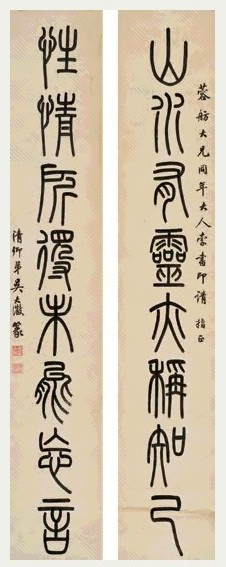 蓉舫大兄同年大人索書即請指正
山水有靈亦稱知己
性情所得未能忘言
清卿弟吳大澂篆